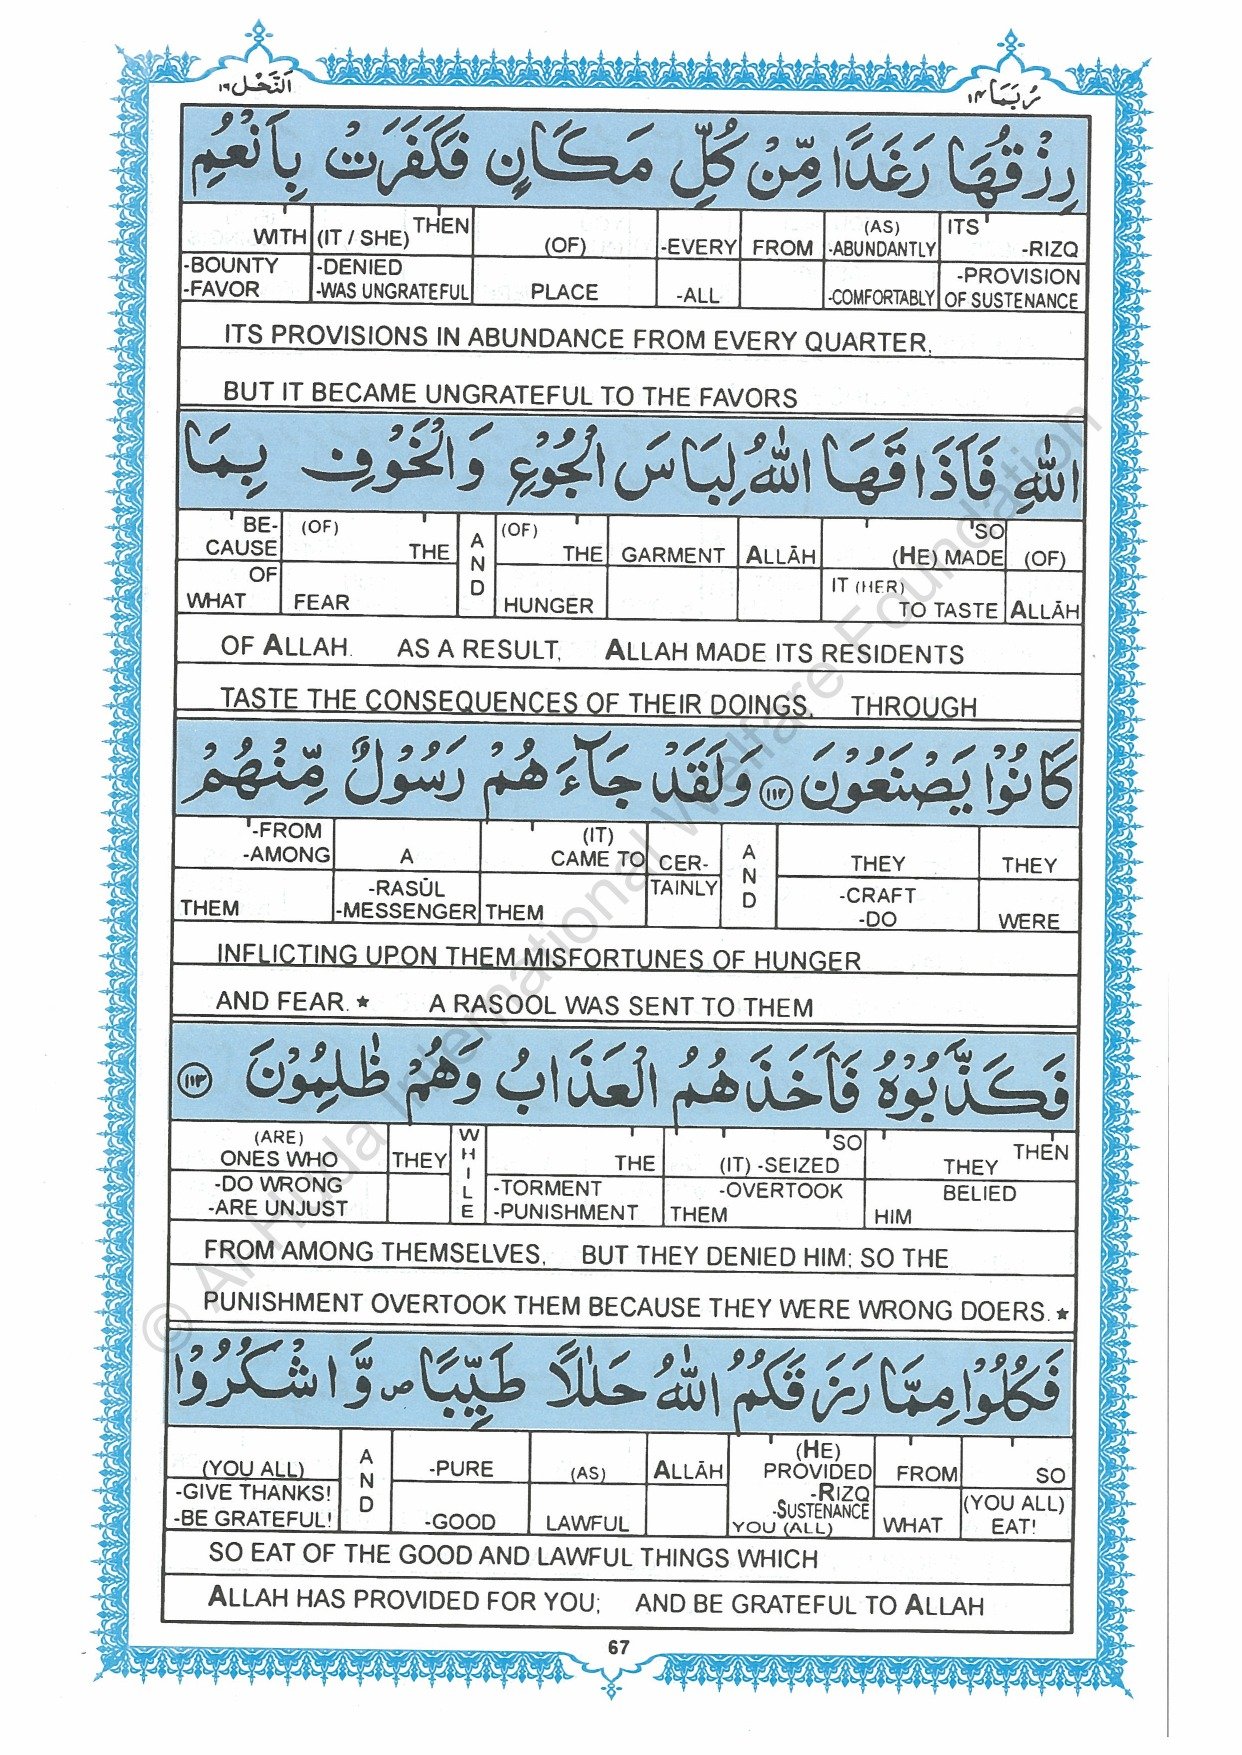 اَلنَّحْل ١٦
رُبَمَا ١٤
رِزْقُهَا رَغَدًا مِّنْ كُلِّ مَكَانٍ فَكَفَرَتْ بِاَنْعُمِ
WITH (IT / SHE) THEN (OF) -EVERY FROM (AS) -ABUNDANTLY ITS -RIZQ
-BOUNTY -FAVOR -DENIED -WAS UNGRATEFUL PLACE -ALL -COMFORTABLY -PROVISION OF SUSTENANCE
ITS PROVISIONS IN ABUNDANCE FROM EVERY QUARTER.
BUT IT BECAME UNGRATEFUL TO THE FAVORS
اللّٰهِ فَاَذَاقَهَا اللّٰهُ لِبَاسَ الْجُوْعِ وَالْخَوْفِ بِمَا
BE-CAUSE (OF) THE AND (OF) THE GARMENT ALLĀH SO (HE) MADE (OF)
OF WHAT FEAR HUNGER IT (HER) TO TASTE ALLĀH
OF ALLAH. AS A RESULT, ALLAH MADE ITS RESIDENTS
TASTE THE CONSEQUENCES OF THEIR DOINGS, THROUGH
كَانُوْا يَصْنَعُوْنَ ١١٢ وَلَقَدْ جَآءَهُمْ رَسُوْلٌ مِّنْهُمْ
-FROM -AMONG A (IT) CAME TO CER- AND THEY THEY
THEM -RASŪL -MESSENGER THEM TAINLY -CRAFT -DO WERE
INFLICTING UPON THEM MISFORTUNES OF HUNGER
AND FEAR.★ A RASOOL WAS SENT TO THEM
فَكَذَّبُوْهُ فَاَخَذَهُمُ الْعَذَابُ وَهُمْ ظٰلِمُوْنَ ١١٣
(ARE) ONES WHO THEY WHILE THE SO (IT) -SEIZED THEN THEY
-DO WRONG -ARE UNJUST -TORMENT -PUNISHMENT -OVERTOOK THEM BELIED HIM
FROM AMONG THEMSELVES, BUT THEY DENIED HIM; SO THE
PUNISHMENT OVERTOOK THEM BECAUSE THEY WERE WRONG DOERS.★
فَكُلُوْا مِمَّا رَزَقَكُمُ اللّٰهُ حَلٰلًا طَيِّبًا ص وَّاشْكُرُوْا
(YOU ALL) AND -PURE (AS) ALLĀH (HE) PROVIDED FROM SO
-GIVE THANKS! -BE GRATEFUL! -GOOD LAWFUL -RIZQ -SUSTENANCE YOU (ALL) WHAT (YOU ALL) EAT!
SO EAT OF THE GOOD AND LAWFUL THINGS WHICH
ALLAH HAS PROVIDED FOR YOU; AND BE GRATEFUL TO ALLAH
67
© Al Huda International Welfare Foundation